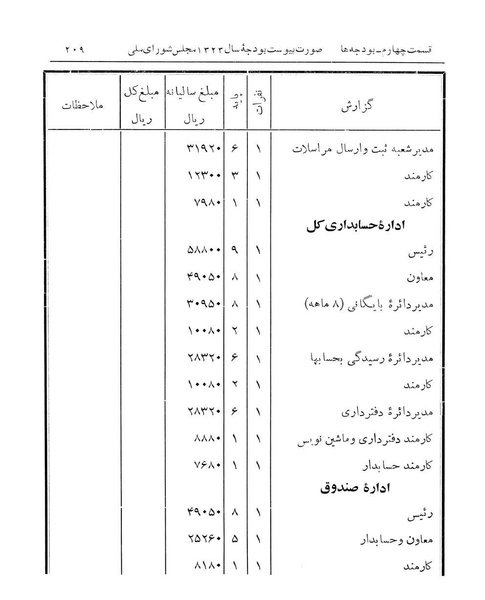 قسمت چهارم ـ بودجه‌ها صورت پیوست بودجهٔ سال ۱۳۲۳ مجلس شورای ملی ۲۰۹
گزارش نفرات پایه مبلغ سالیانه ریال مبلغ کل ریال ملاحظات
مدیر شعبه ثبت و ارسال مراسلات ۱ ۶ ۳۱۹۲۰
کارمند ۱ ۳ ۱۲۳۰۰
کارمند ۱ ۱ ۷۹۸۰
ادارهٔ حسابداری کل
رئیس ۱ ۹ ۵۸۸۰۰
معاون ۱ ۸ ۴۹۰۵۰
مدیر دائرهٔ بایگانی (۸ ماهه) ۱ ۸ ۳۰۹۵۰
کارمند ۱ ۲ ۱۰۰۸۰
مدیر دائرهٔ رسیدگی بحسابها ۱ ۶ ۲۸۳۲۰
کارمند ۱ ۲ ۱۰۰۸۰
مدیر دائرهٔ دفترداری ۱ ۶ ۲۸۳۲۰
کارمند دفترداری و ماشین نویس ۱ ۱ ۸۸۸۰
کارمند حسابدار ۱ ۱ ۷۶۸۰
ادارهٔ صندوق
رئیس ۱ ۸ ۴۹۰۵۰
معاون و حسابدار ۱ ۵ ۲۵۲۶۰
کارمند ۱ ۱ ۸۱۸۰